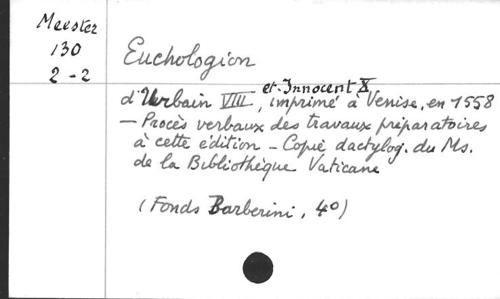 Meester
130
2-2
Euchologion
et Innocent X
d'Urbain VIII, imprimé à Venise, en 1558
— Procès verbaux des travaux préparatoires
à cette édition — Copie dactylog. du Ms.
de la Bibliothèque Vaticane
(Fonds Barberini, 4°)